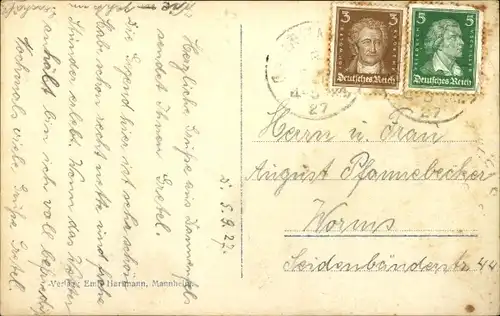 Herzliche Grüße aus
sendet Ihnen
Gretel.
Die Gegend hier ist sehr schön.
Habe schon recht nette und frohe
Stunden erlebt. Wenn das Wetter
anhält bin ich voll befriedigt.
Nochmals viele Grüße Gretel.
D. 5.9.27.
Verlag: Emil Hartmann, Mannheim
3 3
Deutsches Reich
5 5
Deutsches Reich
27
27
Herrn u. Frau
August Pfannebecker
Worms
Seidenbänderstr 44